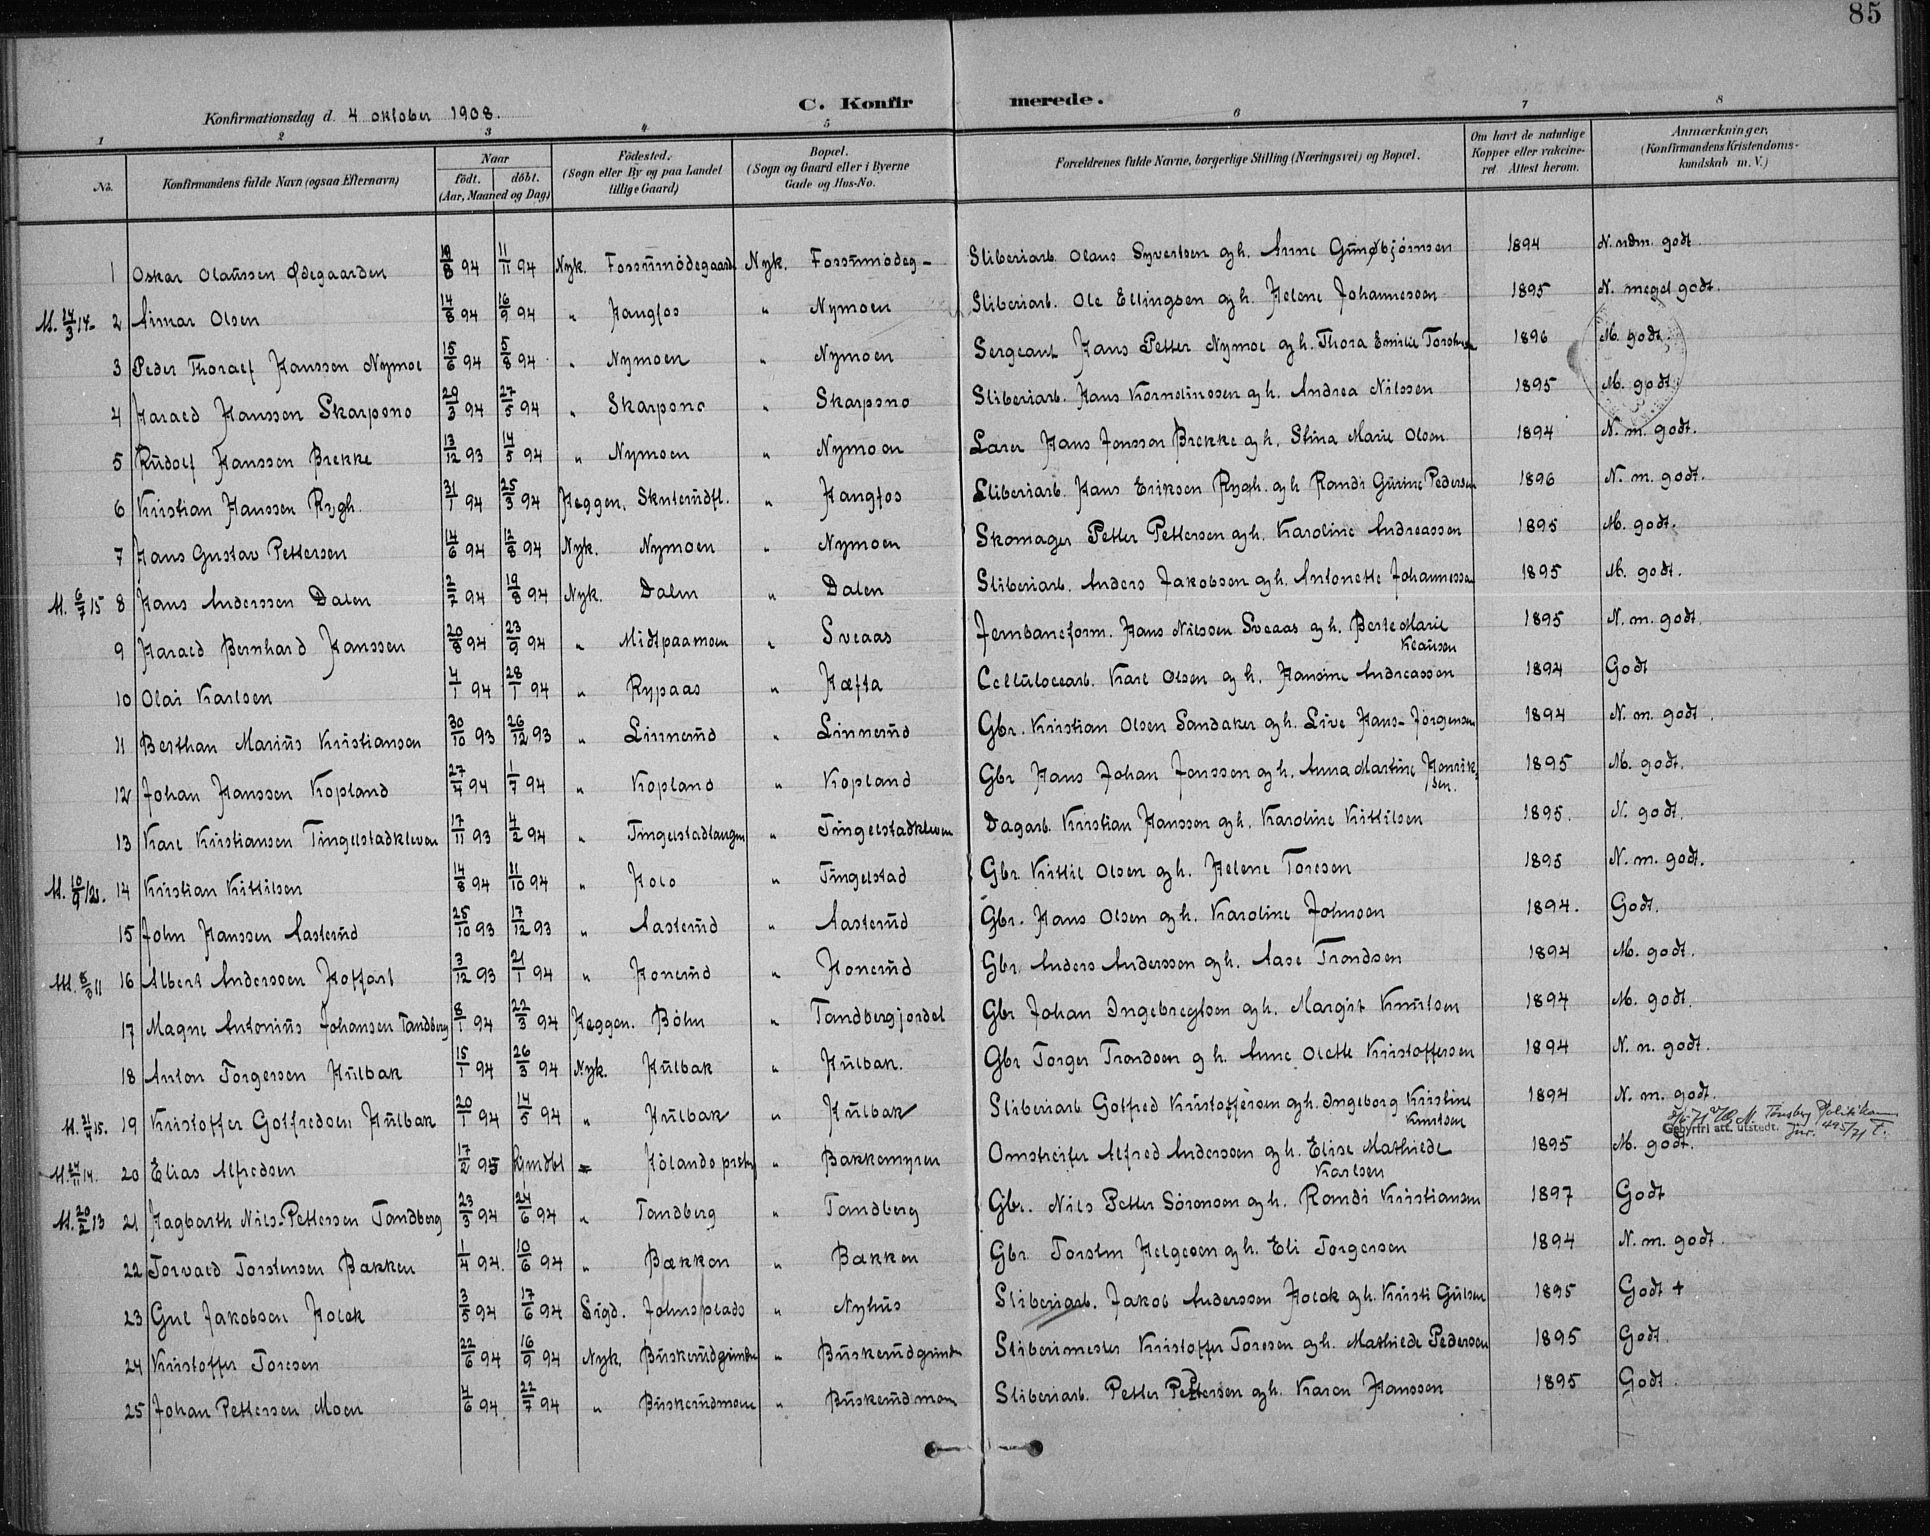 85
Konfirmationsdag d. 4 oktober 1908.
C. Konfirmerede.
1 2 3 4 5 6 7 8
No. | Konfirmandens fulde Navn (ogsaa Efternavn) | Naar født. døbt. (Aar, Maaned og Dag) | Fødested. (Sogn eller By og paa Landet tillige Gaard) | Bopæl. (Sogn og Gaard eller i Byerne Gade og Hus-No. | Forældrenes fulde Navne, borgerlige Stilling (Næringsvei) og Bopæl. | Om havt de naturlige Kopper eller vaccineret. Attest herom. | Anmærkninger, (Konfirmandens Kristendomskundskab m. V.)
1 Oskar Olaussen Ødegaarden 18/8 94 11/11 94 Nyk. Fossumødegaard Nyk. Fossumødeg- Sliberiarb. Olaus Syvertsen og h. Anne Gunbjørnsen 1894 N. ndm. godt
M. 24/3 14- 2 Aimar Olsen 14/8 94 16/9 94 " Haugfos " Nymoen Sliberiarb. Ole Ellingsen og h. Helene Johannessen 1895 N. meget godt.
3 Peder Thoralf Hanssen Nymoe 15/6 94 5/8 94 " Nymoen " Nymoen Sergeant Hans Petter Nymoe og h. Thora Emilie 1896 M. godt.
4 Harald Hanssen Skarpsno 20/3 94 27/5 94 " Skarpsno " Skarpsno Sliberiarb. Hans Korneliussen og h. Andrea Nilssen 1895 M. godt.
5 Rudolf Hanssen Brekke 13/12 93 14/5 94 " Nymoen " Nymoen Lærer Hans Jonssen Brekke og h. Stina Marie Olsen 1894 N. m. godt.
6 Kristian Hanssen Rygh. 31/1 94 25/3 94 Heggen, Skuterudfl. " Haugfos Sliberiarb. Hans Eriksen Rygh. og h Randi Gurine Pedersen 1896 N. m. godt.
7 Hans Gustav Pettersen 14/6 94 12/8 94 Nyk. Nymoen " Nymoen Skomager Petter Pettersen og h. Karoline Andreassen 1895 M. godt.
M. 6/7 15 8 Hans Anderssen Dalen 2/7 94 19/8 94 Nyk. Dalen " Dalen Sliberiarb. Anders Jakobsen og h. Antonette Johannessen 1895 M. godt.
9 Harald Bernhard Hanssen 20/8 94 23/9 94 " Midtpaamoen " Sveaas Jernbaneform. Hans Nilssen Sveaas og h. Berte Marie Klausen 1895 N. m. godt.
10 Olai Karlsen 4/1 94 28/1 94 " Rypaas " Hæfta Cellulosearb. Karl Olsen og h. Hansine Andreassen 1894 Godt
11 Berthan Marius Kristiansen 30/10 93 26/12 93 " Linnerud " Linnerud Gbr. Kristian Olsen Sandaker og h. Live Hans-Jørgensen 1894 N. m. godt.
12 Johan Hanssen Kopland 27/4 94 1/7 94 " Kopland " Kopland Gbr Hans Johan Jonssen og h. Anna Martine Henriksen. 1895 M. godt.
13 Karl Kristiansen Tingelstadkleven 17/11 93 4/2 94 " Tingelstadtangen " Tingelstadkleven Dagarb. Kristian Hanssen og h. Karoline Kittilsen 1895. N. godt.
M. 10/9/21. 14 Kristian Kittilsen 14/8 94 21/10 94 " Hols " Tingelstad Gbr. Kittil Olsen og h. Helene Toresen 1895 N. m. godt.
15 John Hanssen Aasterud 25/10 93 17/12 93 " Aasterud " Aasterud Gbr. Hans Olsen og h. Karoline Johnsen 1894. Godt.
M. 8/3 11 16 Albert Anderssen Hoffart 3/12 93 21/1 94 " Honerud " Honerud Gbr. Anders Anderssen og h. Aase Trondsen 1894 M. godt.
17 Magne Antonius Johansen Tandberg 8/1 94 22/3 94 Heggen. Böhn " Tandbergjordet Gbr Johan Ingebregtsen og h. Margit Knutsen 1894 M. godt.
18 Anton Torgersen Hulbak 15/1 94 26/3 94 Nyk. Hulbak " Hulbak. Gbr Torger Trondsen g h. Anne Olette Kristoffersen 1894 N. n. godt.
M. 21/4 15. 19 Kristoffer Gotfredsen Hulbak 20/1 94 14/5 94 " Hulbak " Hulbak Sliberiarb Gotfred Kristoffersen og h. Ingeborg Kristine Knutsen 1894 N. m. godt.
Gebyrfri att. utstedt. Tønsberg Politikam. Jnr. 495/71 T.
M. 24/11 14. 20 Elias Alfredsen 17/2 95 hjmdbt Hölands prstgj " Bakkemyren Omstreifer Alfred Anderssen og h. Elise Mathilde Karlsen 1895 M. godt.
M. 20/2 13 21 Hagbarth Nils-Pettersen Tandberg 23/3 94 24/6 94 " Tandberg " Tandberg Gbr. Nils Petter Sörensen og h. Randi Kristiansen 1897 Godt
22 Torvald Torstensen Bækken 1/4 94. 10/6 94 " Bækken " Bækken Gbr Torsten Helgesen og h. Eli Torgersen 1894 N. m. godt.
23 Gul Jakobsen Holek 3/5 94 17/6 94 Sigd. Johnsplads " Nyhus Sliberiarb. Jakob Anderssen Holek og h. Kristi Gulsen 1895 Godt +
24 Kristoffer Toresen 22/6 94 16/9 94 Nyk. Buskerudgrinden " Buskerudgrinden Sliberimester Kristoffer Toresen og h. Mathilde Pedersen 1895 Godt.
25 Johan Pettersen Moen 4/6 94. 22/7 94 " Buskerudmoen " Buskerudmoen Sliberiarb. Petter Pettersen og h. Karen Hanssen 1895 Godt.